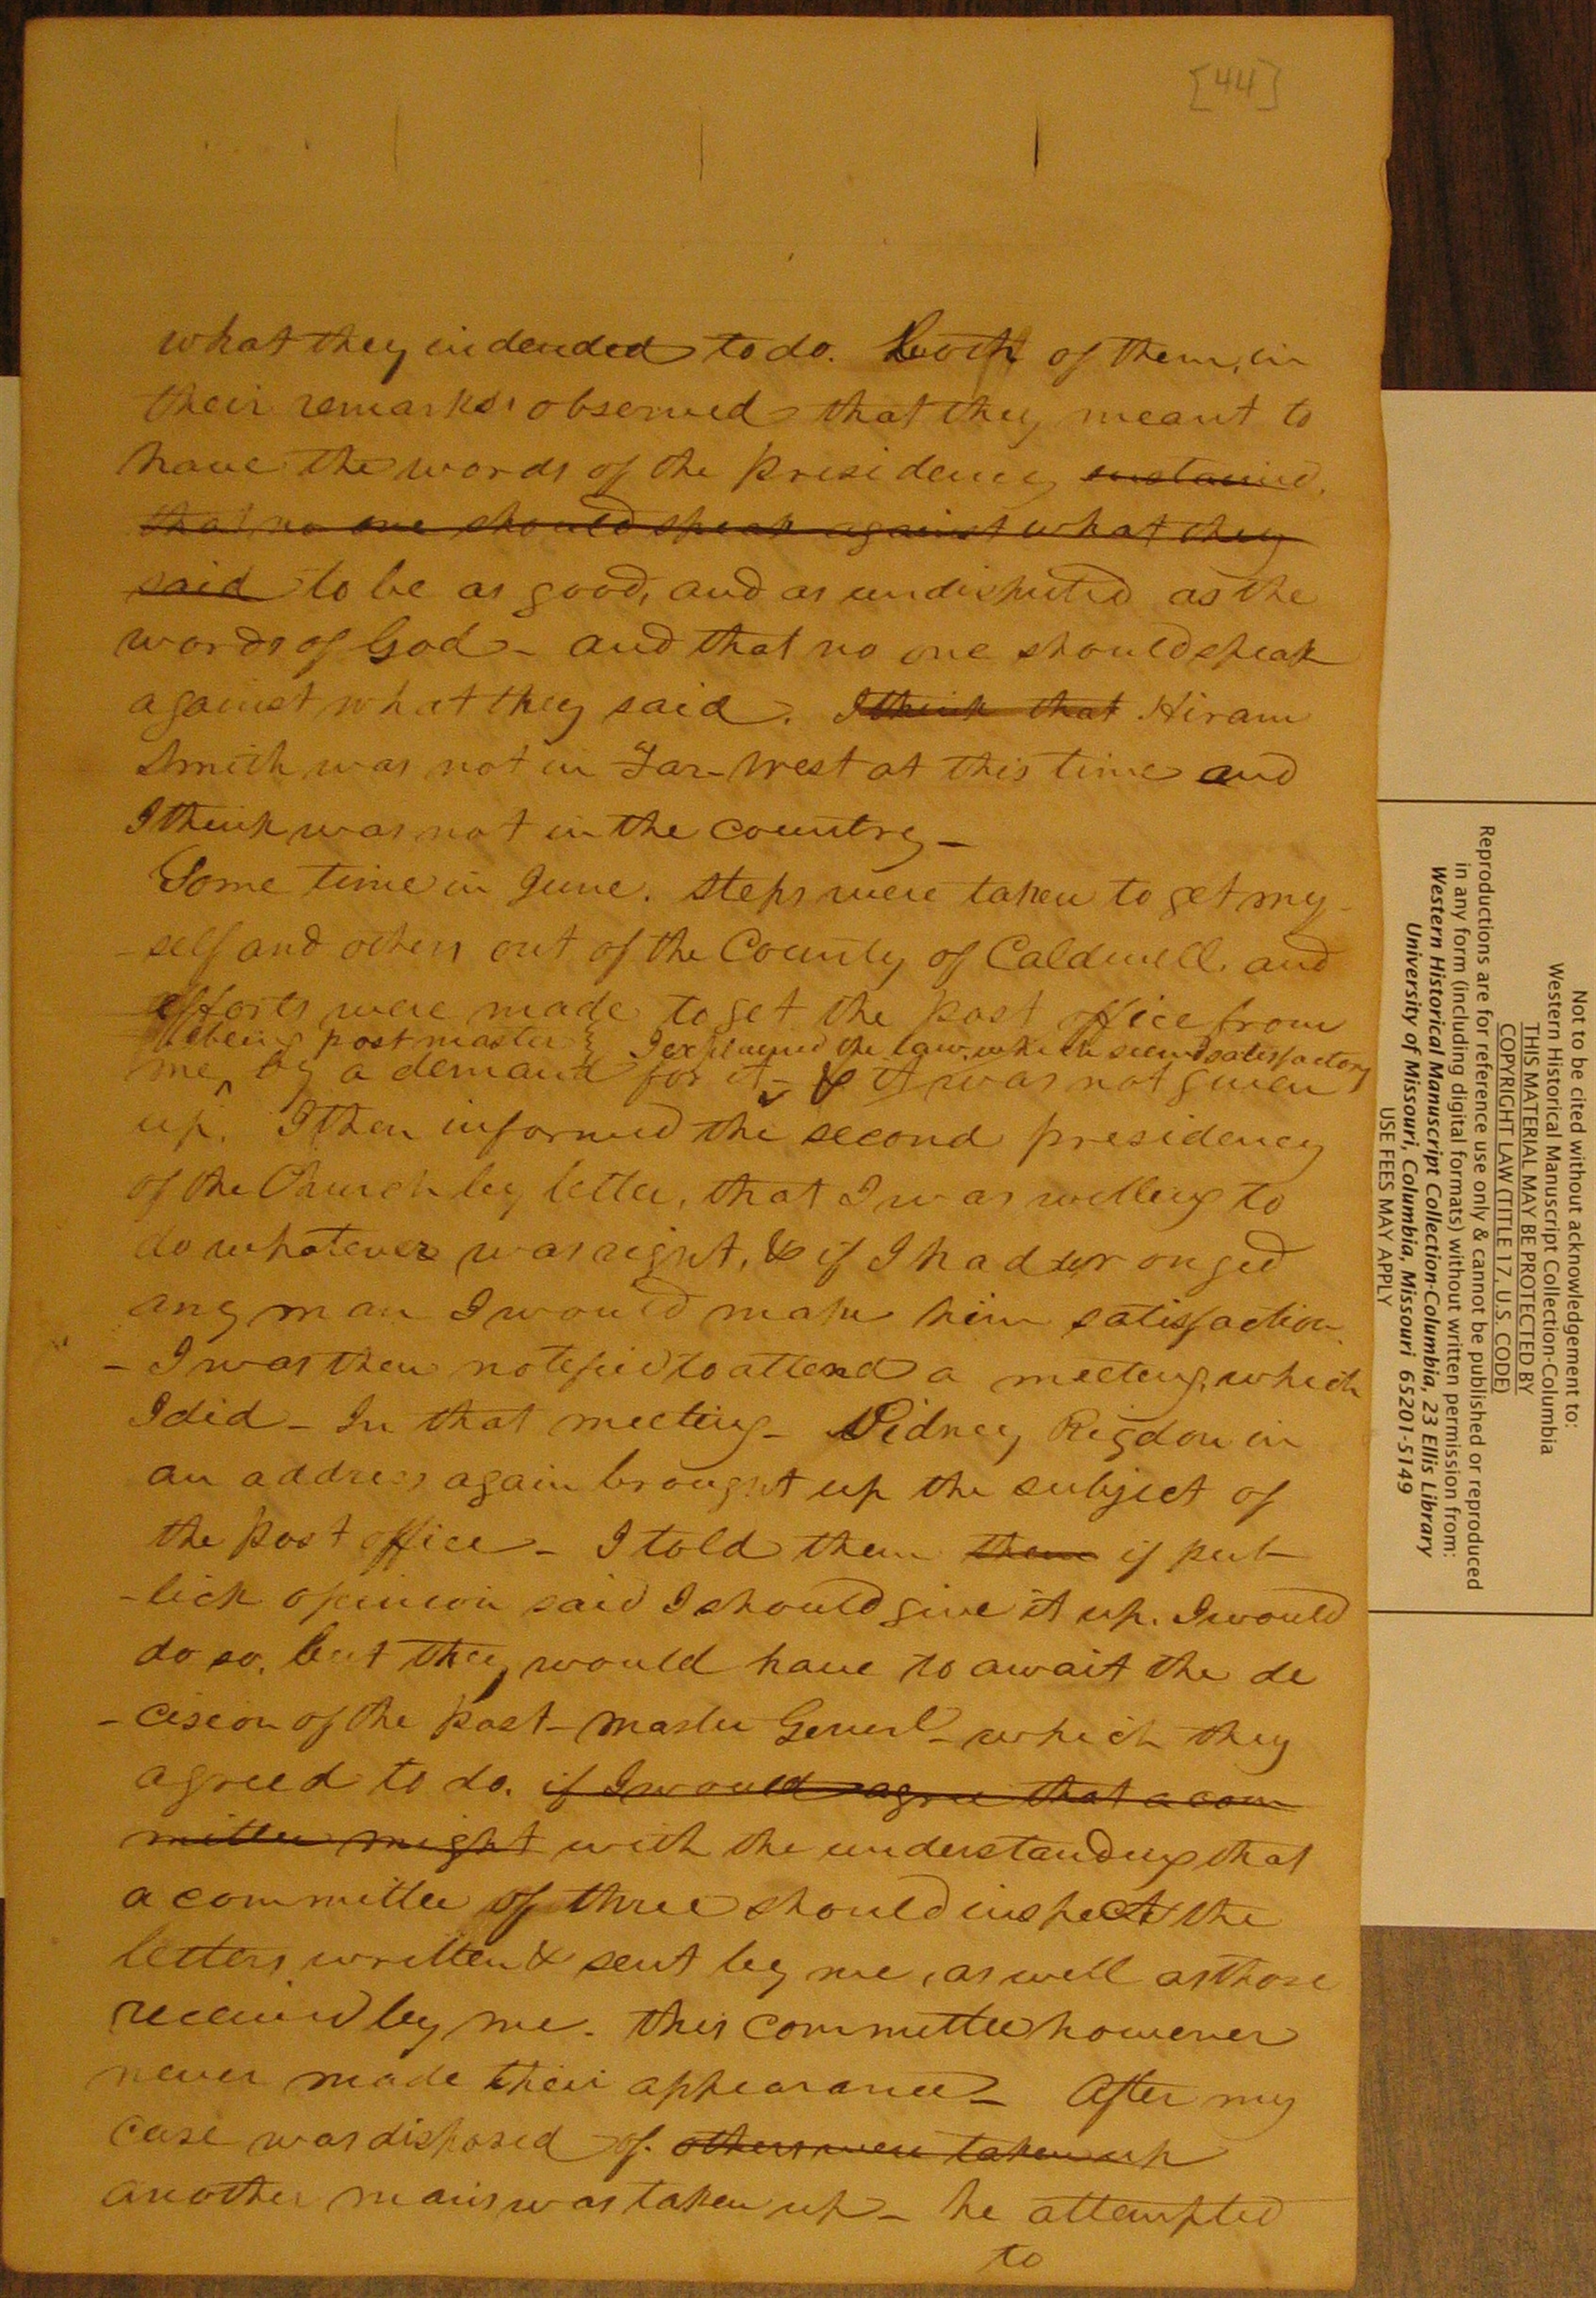 [44]
what they indended to do. Both of them, in
their remarks, observed that they meant to
have the words of the presidency sustained.
that no one should speak against what they
said to be as good, and as undisputed as the
words of God - and that no one should speak
against what they said. I think that Hiram
Smith was not in Far-West at this time and
I think was not in the country -
Some time in June. steps were taken to get my-
-self and others out of the County of Caldwell, and
efforts were made to get the post office from
being post master I explained the law, which seemed satisfactory
me, by a demand for it - & it was not given
up. I then informed the second presidency
of the Church by letter, that I was willing to
do whatever was right, & if I had wronged
any man I would make him satisfaction.
- I was then notified to attend a meeting, which
I did - In that meeting - Sidney Rigdon in
an address again brought up the subject of
the post office - I told them them if pub-
-lick opinion said I should give it up. I would
do so, but they would have to await the de
-cision of the post-master Generl - which they
agreed to do. if I would agree that a com
mittee might with the understanding that
a committee of three should inspect the
letters written & sent by me, as well as those
received by me. this committee however
never made their appearance - After my
case was disposed of. others were taken up
another mans was taken up - he attempted
to
Not to be cited without acknowledgement to:
Western Historical Manuscript Collection-Columbia
THIS MATERIAL MAY BE PROTECTED BY
COPYRIGHT LAW (TITLE 17, U.S. CODE)
Reproductions are for reference use only & cannot be published or reproduced
in any form (including digital formats) without written permission from:
Western Historical Manuscript Collection-Columbia, 23 Ellis Library
University of Missouri, Columbia, Missouri 65201-5149
USE FEES MAY APPLY